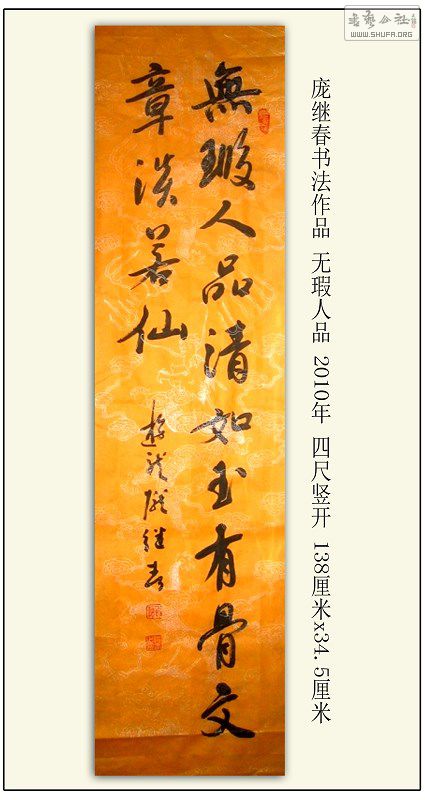 無瑕人品清如玉有骨文
章淡若仙
庞继春书法作品 无瑕人品 2010年 四尺竖开 138厘米x34.5厘米
书艺公社
WWW.SHUFA.ORG